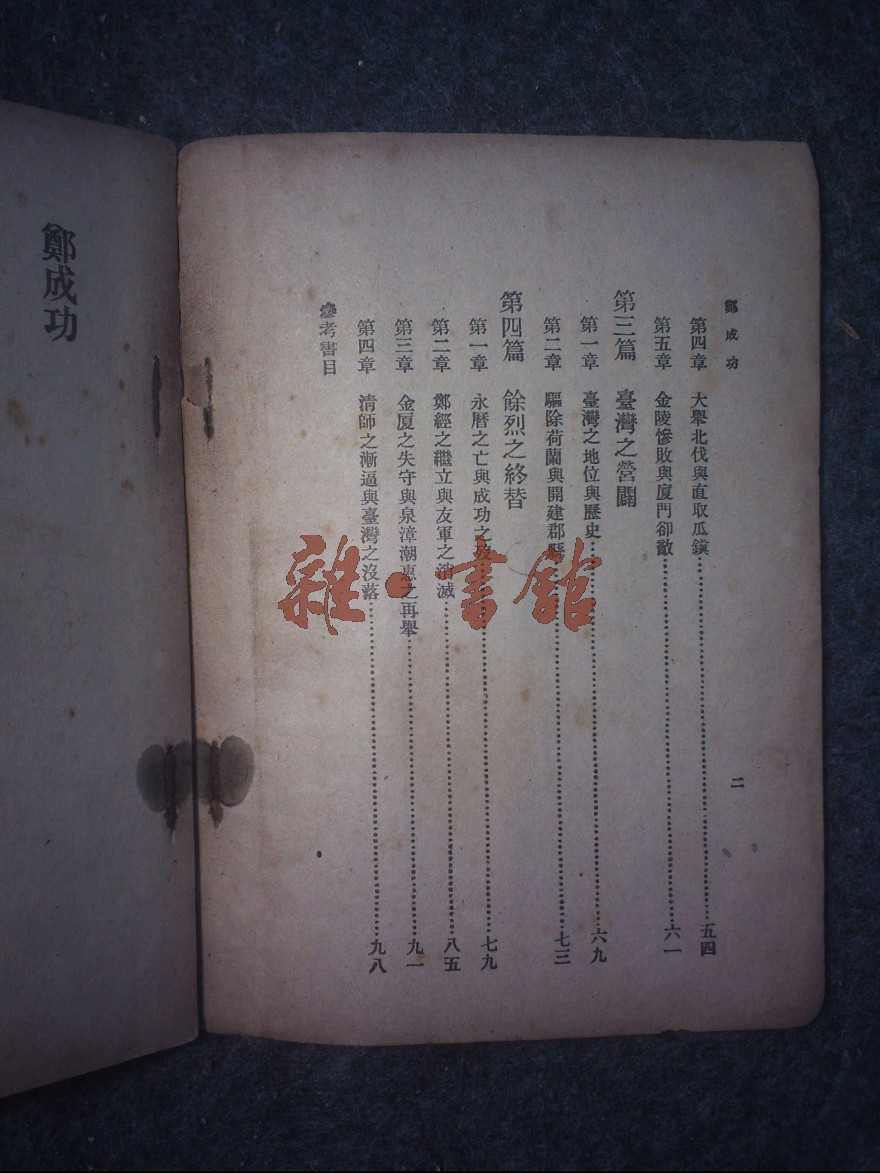 鄭成功
二
第四章 大舉北伐與直取瓜鎮……五四
第五章 金陵慘敗與厦門卻敵……六一
第三篇 臺灣之營闢
第一章 臺灣之地位與歷史……六九
第二章 驅除荷蘭與開建郡縣……七三
第四篇 餘烈之終替
第一章 永曆之亡與成功之歿……七九
第二章 鄭經之繼立與友軍之消滅……八五
第三章 金厦之失守與泉漳潮惠之再舉……九一
第四章 清師之漸逼與臺灣之沒落……九八
參考書目
鄭成功
雜·書館